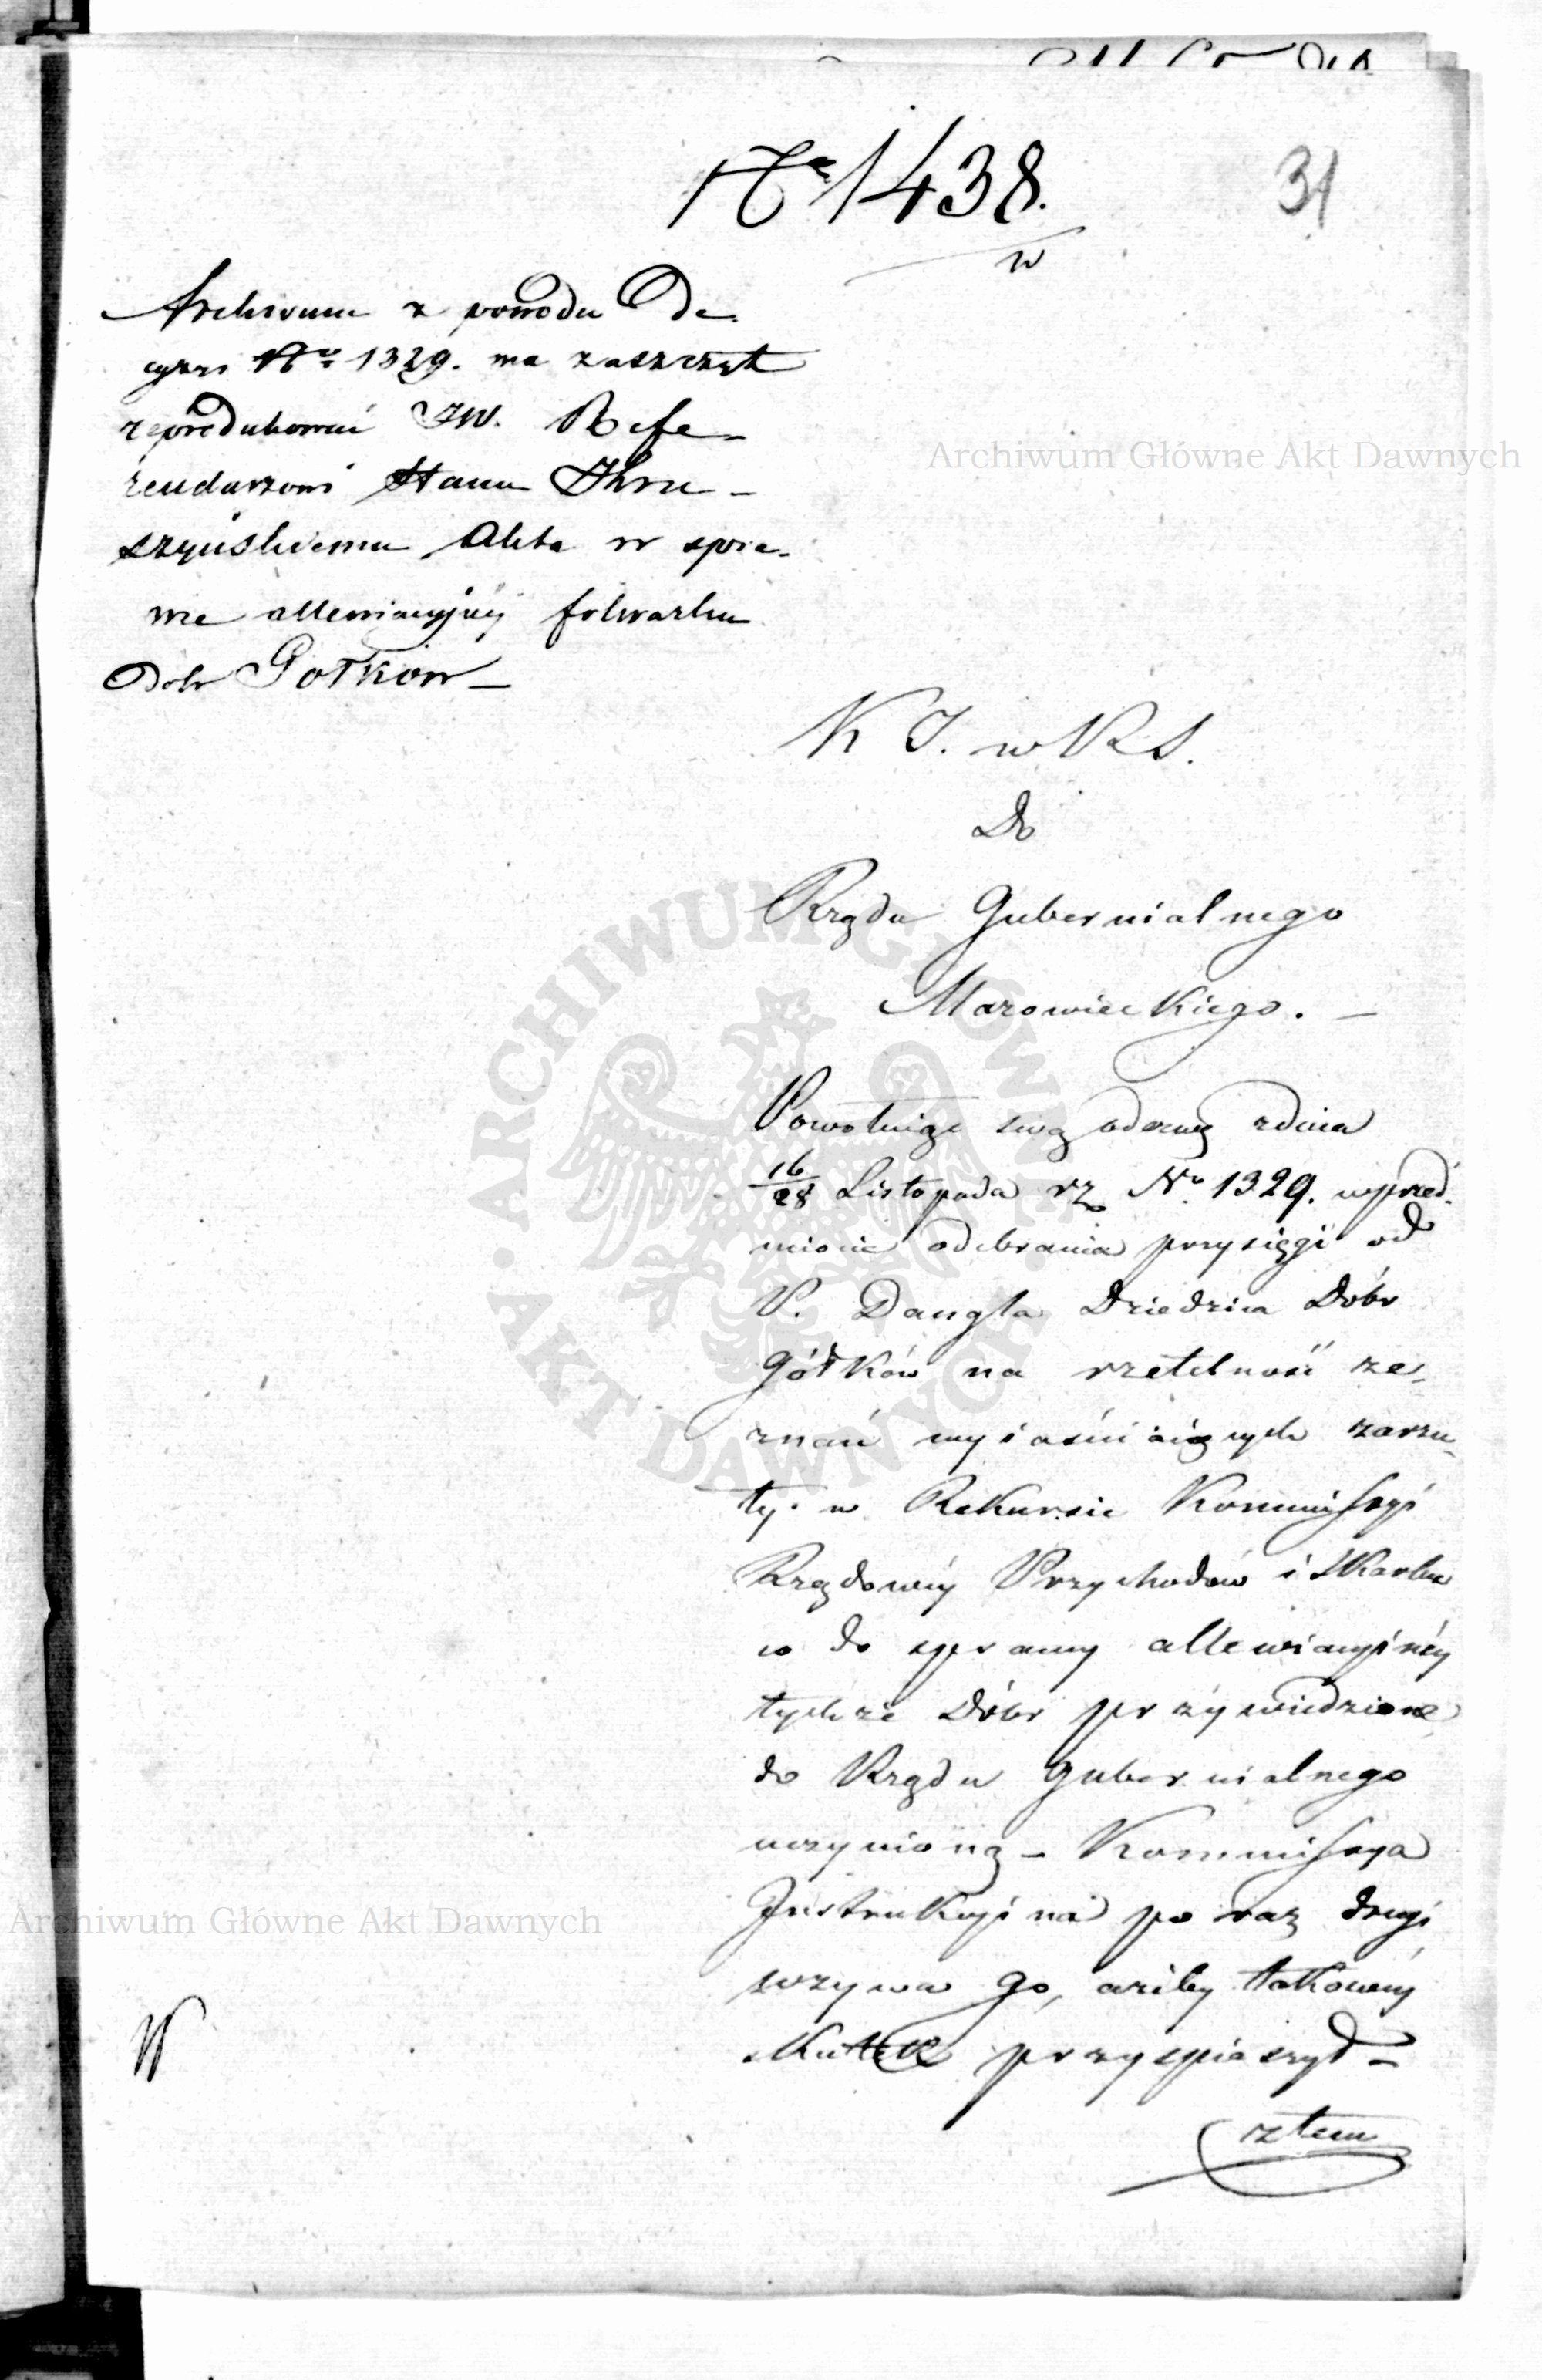 No 1438.
w
31
Archiwum z powodu De-
cyzyi No 1329. ma zaszczyt
reprodukować JW. Refe-
rendarzowi Stanu
szyńskiemu Akta w spra-
wie allewiacyjnéj folwarku
Dobr Gotków —
K J. w K S.
Do
Rządu Gubernialnego
Mazowieckiego. —
Powołując swą odezwę z dnia
16/28 Listopada rz No. 1329. w przed-
miocie odebrania przysięgi od
P. Dangla Dziedzica Dóbr
Gótków na rzetelność ze-
znań wyiaśniaiących zarzu-
ty w Rekursie Kommissyi
Rządowéy Przychodów i Skarbu
co do sprawy allewiacyinéy
tychże Dóbr przywiedzione
do Rządu Gubernialnego
uczynioną — Kommissya
Instrukcyina po raz drugi
wzywa go, ażeby takowéy
skutek przyspieszył —
Archiwum Główne Akt Dawnych
Archiwum Główne Akt Dawnych
ARCHIWUM GŁÓWNE · AKT DAWNYCH ·